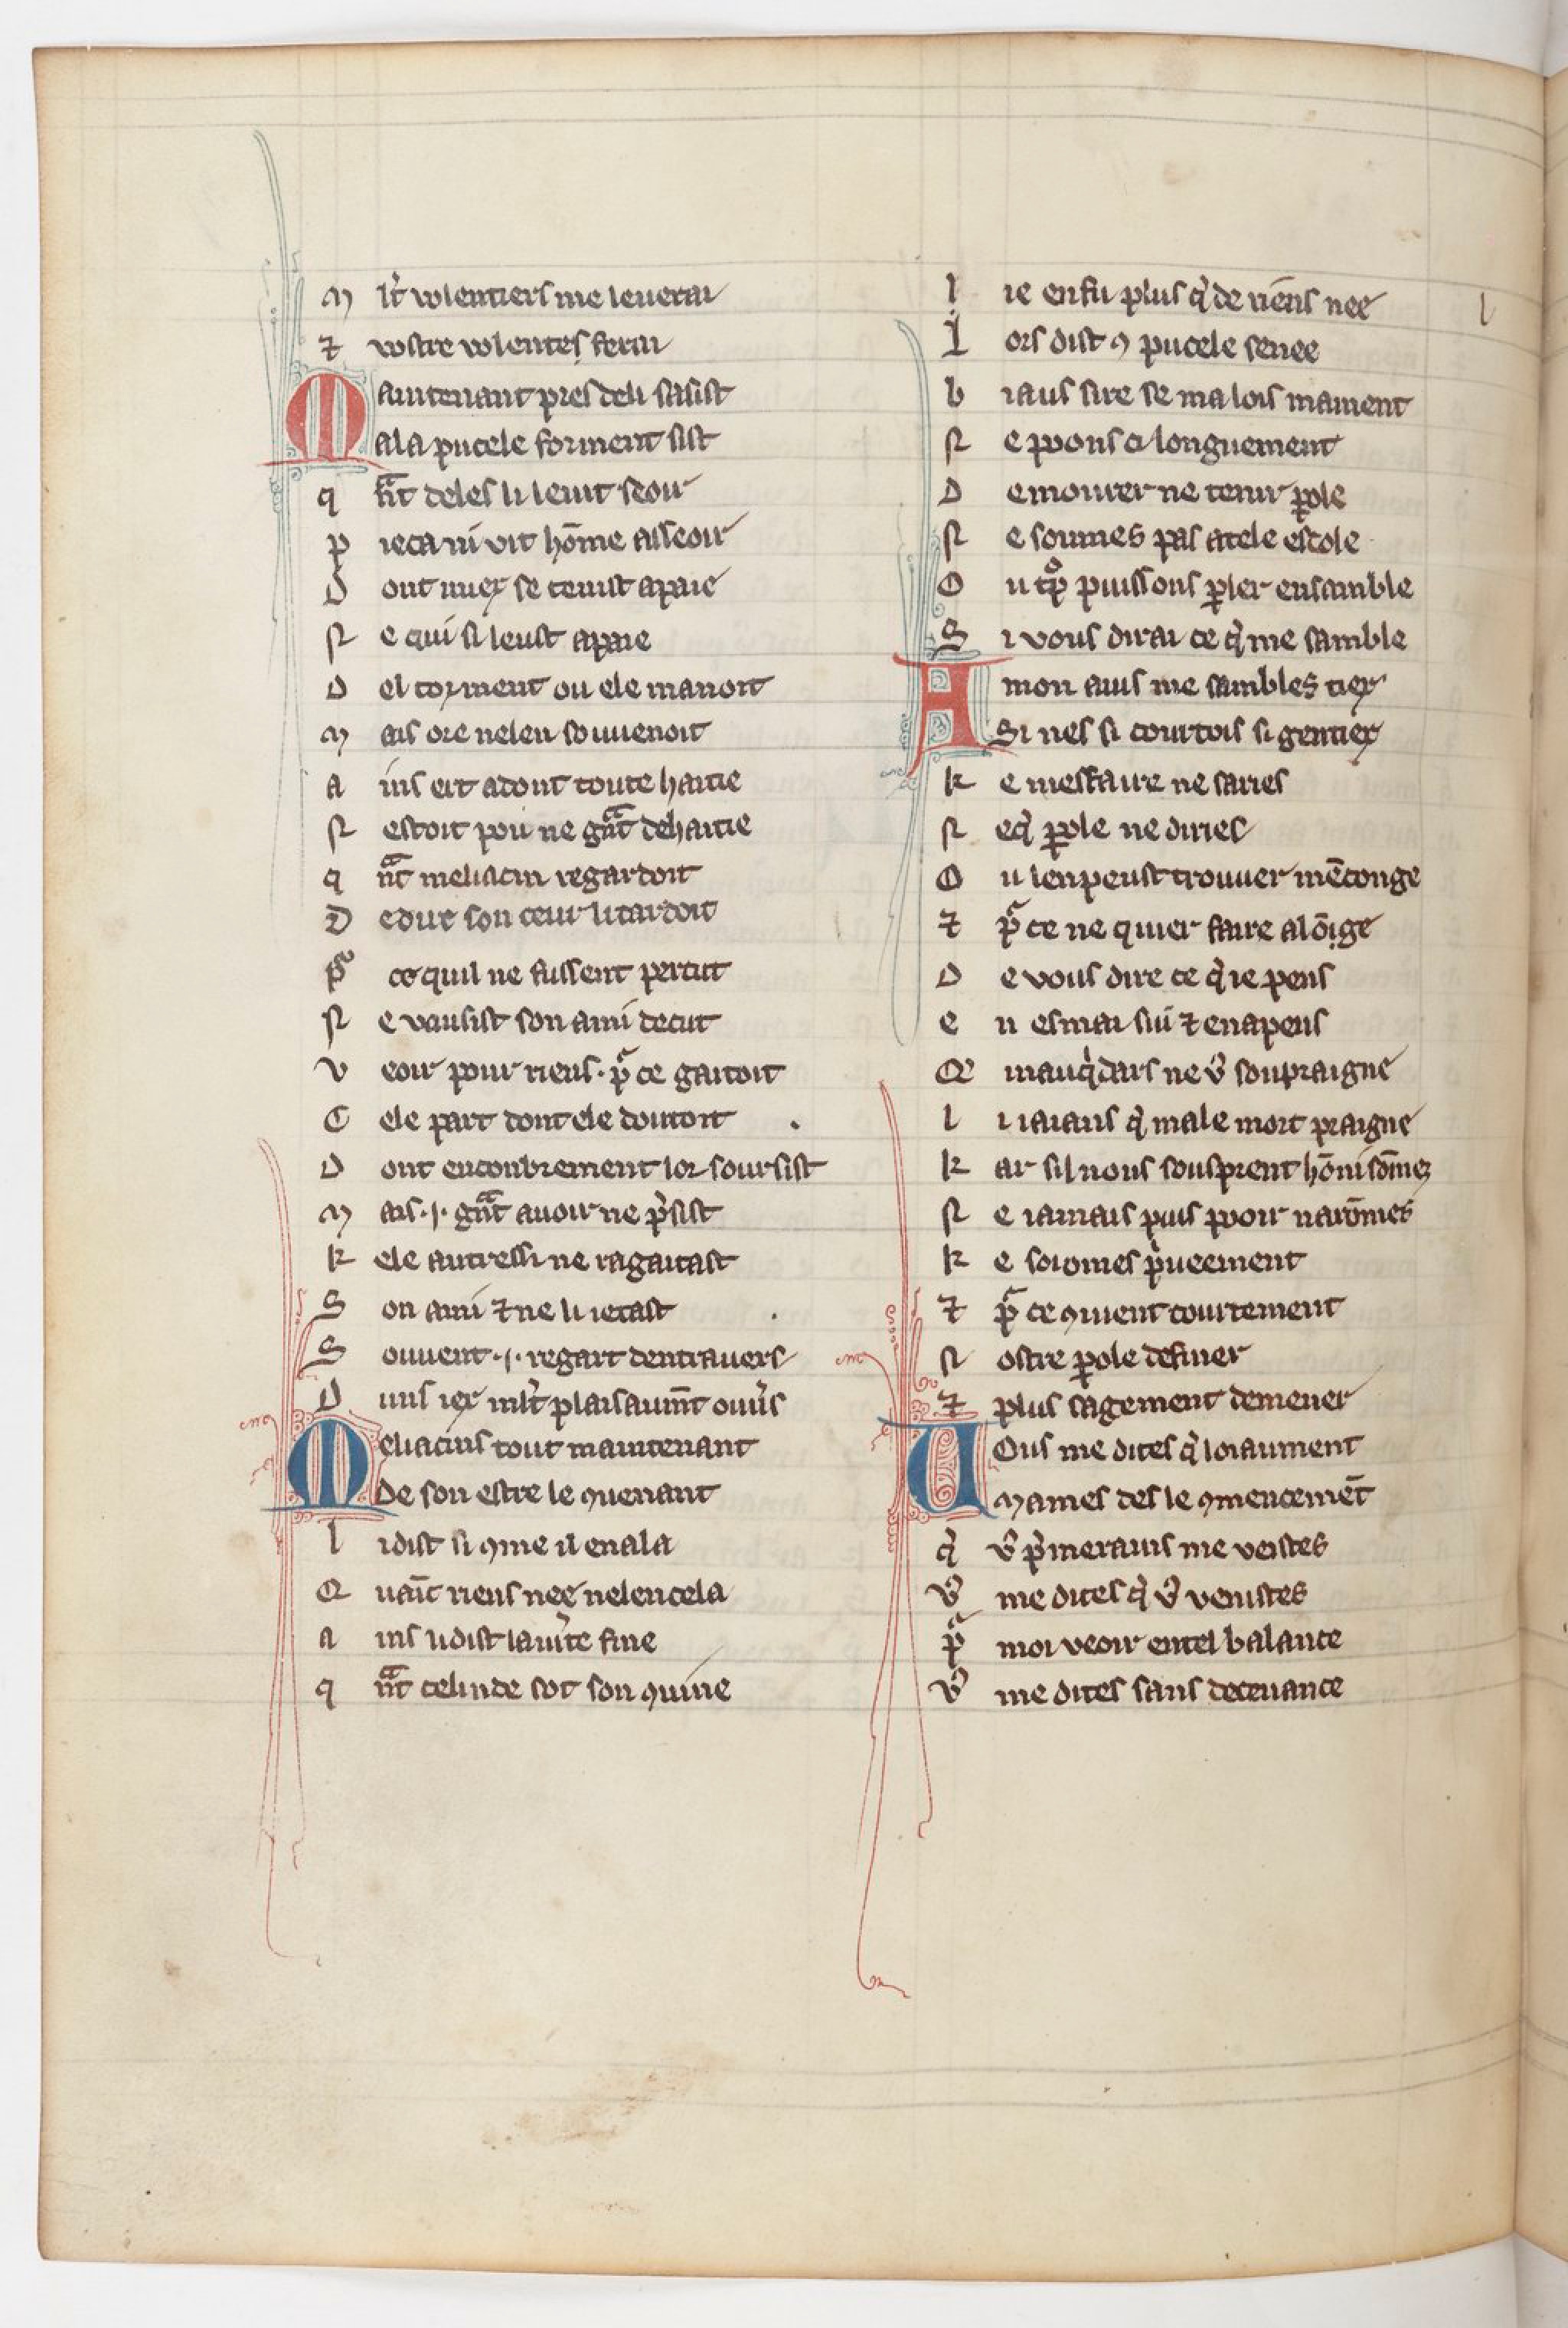 M lt̾ volentiers me leuerai
⁊ vostre volentes ferai
Maintenant pres de li sasist
A la pucele forment sist
q n̄t deles li le uit seoir
p ieca ni vit hōme asseoir
D ont miex se tenist apaie
N e qui si leust apaie
D el torment ou ele manoit
M ais ore ne len souuenoit
A ins ert adont toute haitie
N estoit pou ne gn̄t dehaitie
q n̄t meliacin regardoit
D e dire son cuer li tardoit
pᵒ ce quil ne fussent percut
N e vausist son ami decut
V eoir pour riens . pᵒ ce gaitoit
C ele part dont ele doutoit
D ont enconbrement lor soursist
M ais .j. gn̄t auoir ne p̾sist
K ele autressi ne ragaitast
S on ami ⁊ ne li ietast
S ouuent .j. regart dentrauers
D uns iex ml̾t plaisaum̄t ouu̾s
Meliacins tout maintenant
De son estre le ꝯuenant
L i dist si ꝯme il en ala
Q uaīt riens nee ne len cela
A ins li dist la uite fine
q n̄t celinde sot son ꝯuine
L ie en fu plus q̇ de riens nee
L ors dist ꝯ pucele senee
B iaus sire se ma lois mament
N e poons ci longuement
D emourer ne tenir ꝑole
N e sommes pas a tele escole
O u tᵒp puissons ꝑler ensamble
S i vous dirai ce q̇ me samble
A mon auis me sambles tiex
Si nes si courtois si gentiex
K e mesfaire ne saries
N e q̇ ꝑole ne diries
O u len peust trouuer mēconge
⁊ pᵒ ce ne quier faire alōige
D e vous dire ce q̇ ie pens
E n esmai sui ⁊ en apens
Q mauq̇dars ne vꝰ soupraigne
L i iaians q̇ male mort praigne
K ar sil nous sousprent hōni sōmez
N e iamais puis pooir narōmes
K e soiomes p̾ueement
⁊ pᵒ ce ꝯuient courtement
N ostre ꝑole definer
⁊ plus sagement demener
Vous me dites q̇ loiaument
Mames des le ꝯmencemēt
q̇ vꝰ p̾merains me veistes
Vꝰ me dites q̇ vꝰ venistes
pᵒ moi veoir en tel balance
Vꝰ me dites sans deceuance